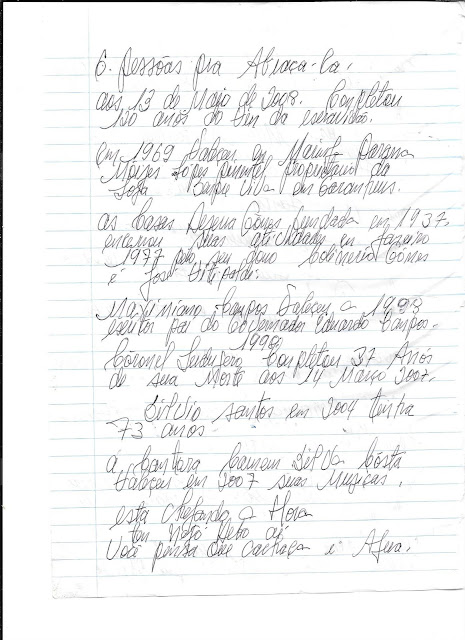 6. pessoas pra Abraça-la.
aos 13 de Maio de 2008. Completou
120 anos do fim da escravidão.
em 1969 faleceu em Maringa Parana
Moizes Lopes proprietario da
Loja Sempre Viva em Garanhuns.
as Casas Regina Gomes fundada em 1937,
encerrou suas atividades em Janeiro
1977 pelo seu dono Gomes
é José
Maximiano Campos faleceu a 1998
escritor pai do Governador Eduardo Campos.
1998
Coronel Ludugero Completou 37 Anos
de sua Morte aos 14 Março 2007.
Silvio santos em 2004 tinha
73 anos
a Cantora Carmem Silva Costa
faleceu em 2007 suas Musicas,
esta chegando a Hora
tou
Você pensa que cachaça é Agua.